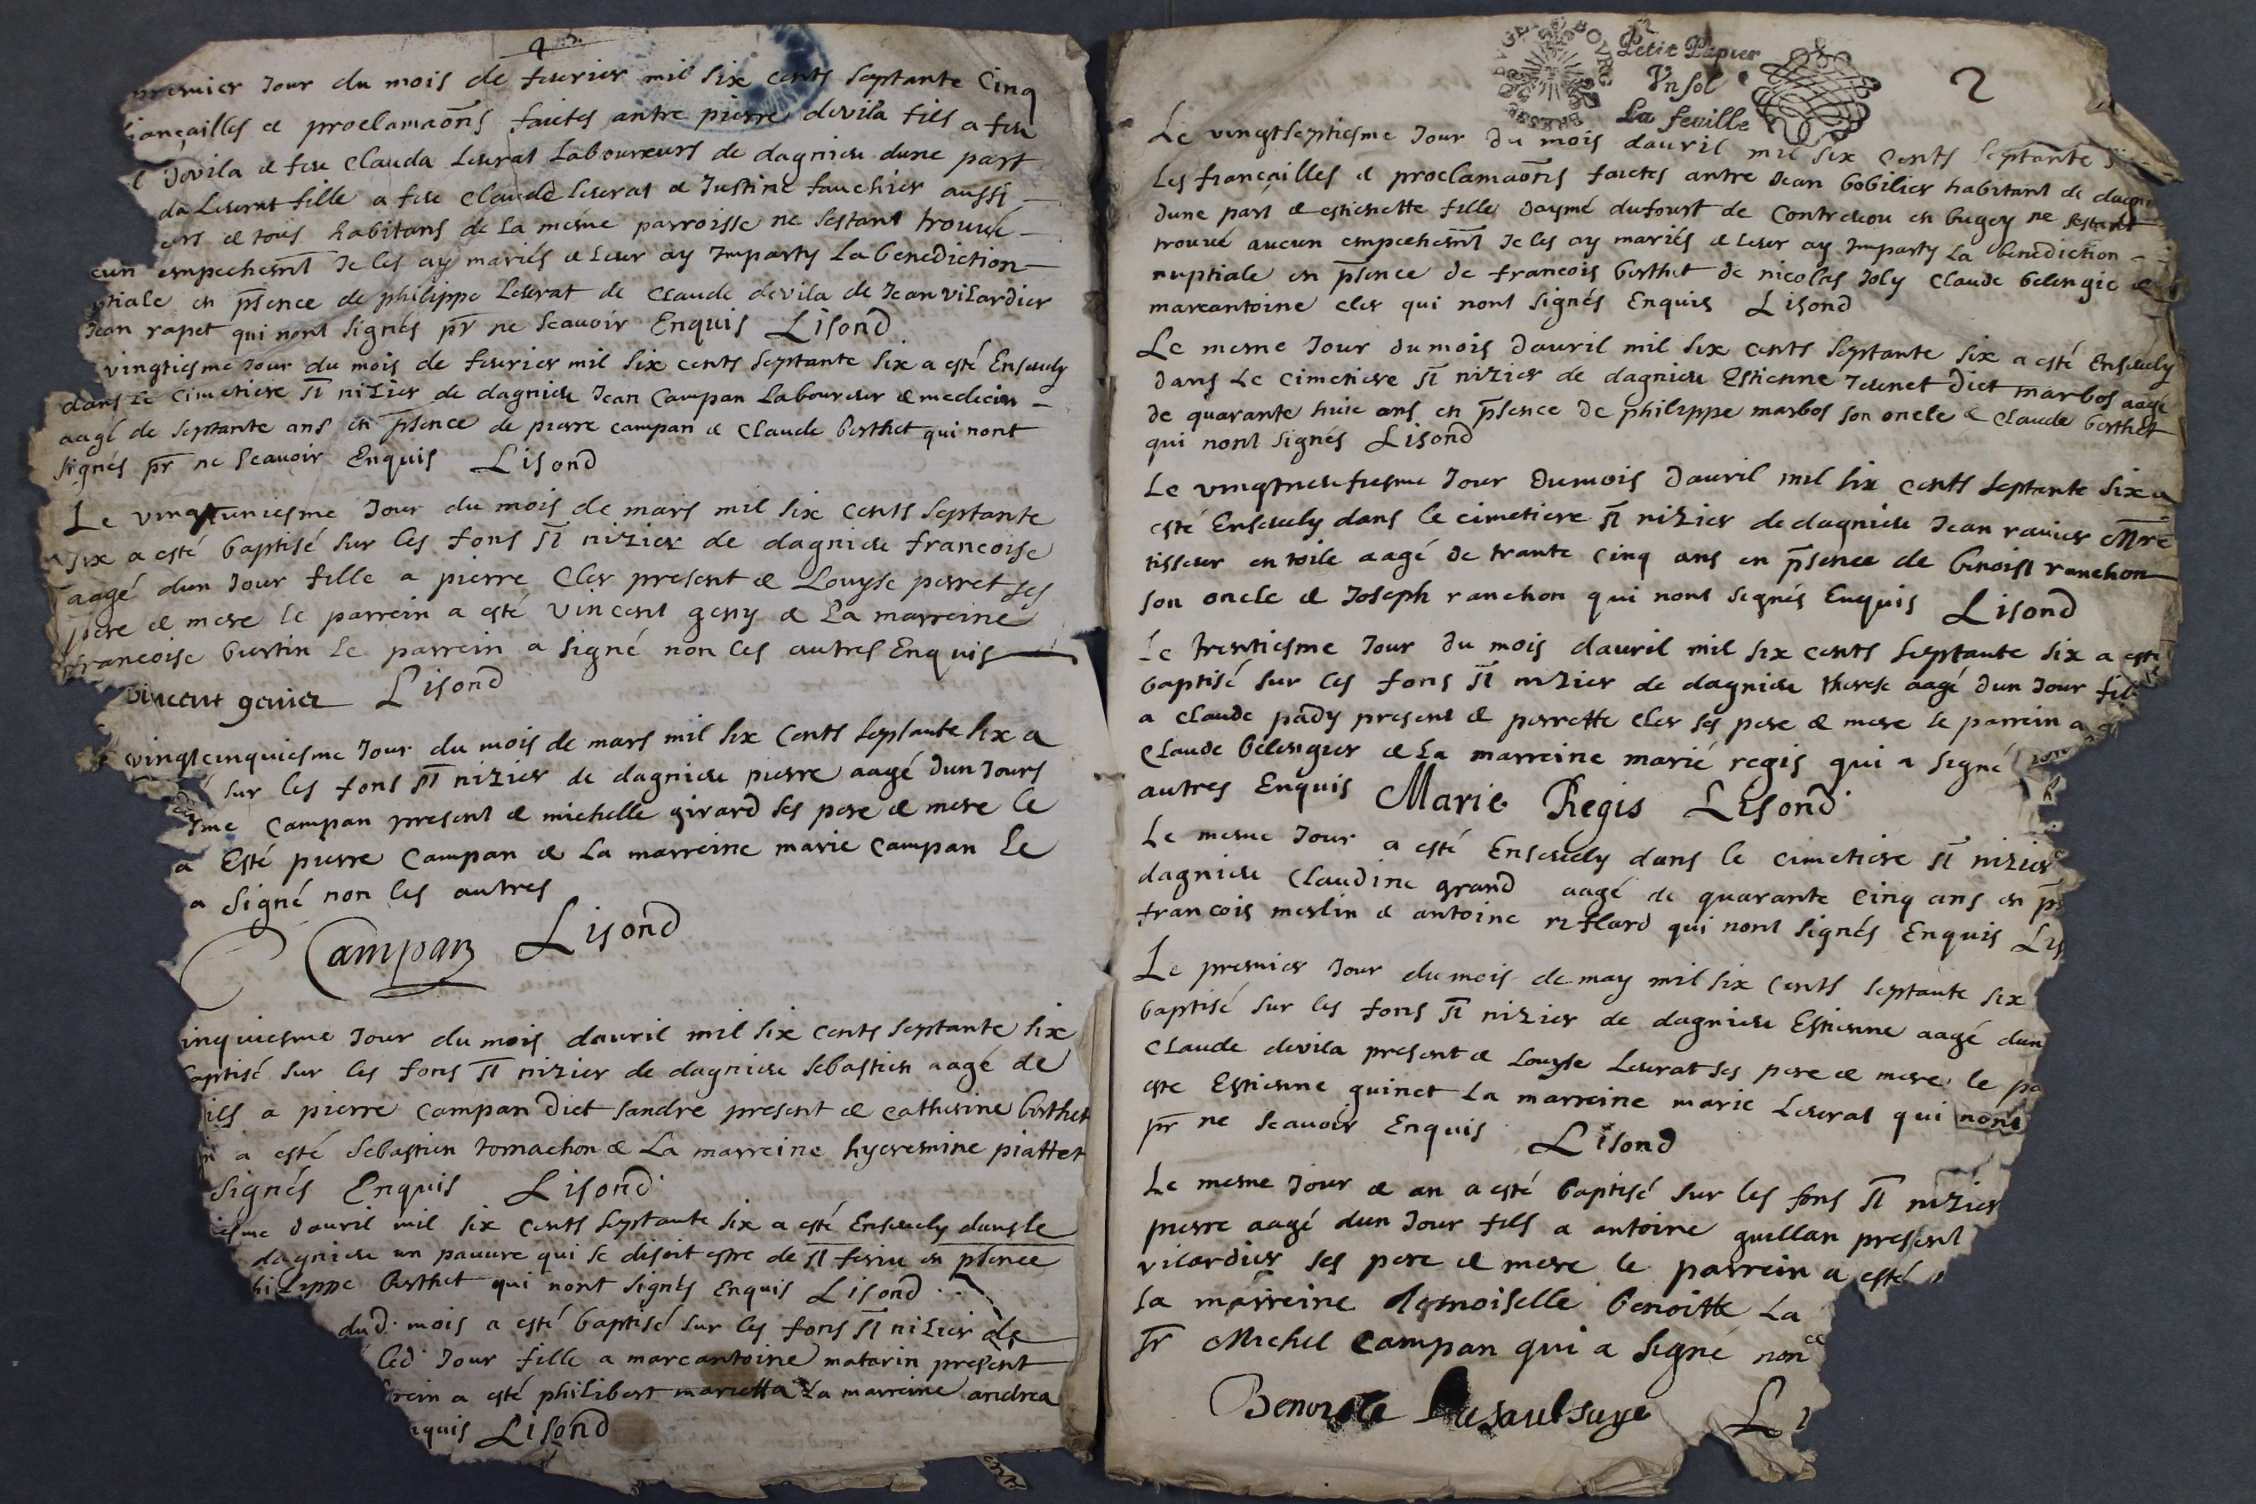 premier Jour du mois de feurier mil six cents septante Cinq
iançailles & proclamaons faictes antre pierre devila fils a feu
devila & feu Clauda Leurat Laboureurs de dagnieu dune part
da Leurat fille a feu Claude Leurat & Justine fauchier aussi
urs & tous habitans de La mesme parroisse ne sestant trouué
cun empechemt Je les ay mariés & Leur ay Imparty La benediction
ptiale en psence de philippe Leurat de Claude devila de Jean vilardier
Jean rapet qui nont signés pr ne scauoir Enquis Lisond
vingtiesme Jour du mois de feurier mil six cents septante six a esté Enseuely
dans Le Cimetiere st nizier de dagnieu Jean Campan Laboureur & medecin
aagé de septante ans en psence de pierre campan & Claude berthet qui nont
signés pr ne scauoir Enquis Lisond
Le vingtuniesme Jour du mois de mars mil six cents septante
six a esté baptisé sur les fons st nizier de dagnieu francoise
aagé dun Jour fille a pierre Cler present & Louyse perret ses
pere & mere le parrein a esté vincent geny & La marreine
francoise burtin Le parrein a signé non les autres Enquis
vincent genier Lisond
vingtcinquiesme Jour du mois de mars mil six cents septante six a
sur les fons st nizier de dagnieu pierre aagé dun Jours
sme Campan present & michelle girard ses pere & mere le
a Esté pierre Campan & La marreine marie Campan Le
a signé non les autres
Campan Lisond
inquiesme Jour du mois dauril mil six cents septante six
baptisé sur les fons st nizier de dagnieu sebastien aage de
ils a pierre campan dict sandre present & catherine berthet
n a esté sebastien tomachon & La marreine hyeremine piattet
signés Enquis Lisond
iesme dauril mil six cents septante six a esté Enseuely dans le
dagnieu un pauure qui se disoit estre de st feriu en psence
hilippe berthet qui nont signés Enquis Lisond
dud. mois a esté baptisé sur les fons st nizier de
led. Jour fille a marcantoine matarin present
rein a esté philibert marietta La marreine andrea
nquis Lisond
2
BOURG BRESSE BUGEY
Petit Papier
Vn sol
La feuille
Le vingtseptiesme Jour du mois dauril mil six cents septante
Les fiancailles & proclamaons faictes antre Jean bobilier habitant de dagni
dune part & estienette fille daymé dufourt de Contreuou en bugey ne sestant
trouué aucun empechemt Je les ay mariés & Leur ay Imparty La benediction
nuptiale en psence de francois berthet de nicolas Joly Claude belengie &
marcantoine cler qui nont signés Enquis Lisond
Le mesme Jour du mois dauril mil six cents septante six a esté Enseuely
dans Le cimetiere st nizier de dagnieu Estienne Jeunet dict marbos aagé
de quarante huit ans en psence de philippe marbos son oncle & Claude berthet
qui nont signés Lisond
Le vingtneufiesme Jour du mois dauril mil six cents septante six a
esté Enseuely dans le cimetiere st nizier de dagnieu Jean rauier Mre
tisseur en toile aagé de trante cinq ans en psence de benoist ranchon
son oncle & Joseph ranchon qui nont signés Enquis Lisond
Le trentiesme Jour du mois dauril mil six cents septante six a esté
baptisé sur les fons st nizier de dagnieu therese aagé dun Jour fil
a Claude pady present & perrette cler ses pere & mere le parrein a
Claude belengier & La marreine marie regis qui a signé non
autres Enquis Marie Regis Lisond
Le mesme Jour a esté Enseuely dans le cimetiere st nizier
dagnieu Claudine grand aagé de quarante cinq ans en ps
francois merlin & antoine riflard qui nont signés Enquis Lis
Le premier Jour du mois de may mil six cents septante six
baptisé sur les fons st nizier de dagnieu Estienne aagé dun
Claude devila present & Louyse Leurat ses pere & mere le pa
este Estienne guinet La marreine marie Leurat qui nont
pr ne scauoir Enquis Lisond
Le mesme Jour & an a esté baptisé sur les fons st nizier
pierre aagé dun Jour fils a antoine guillan present
vilardier ses pere & mere le parrein a esté
La marreine demoiselle benoitte La
sr Michel Campan qui a signé non
Benoiste Lusaulsaye Li